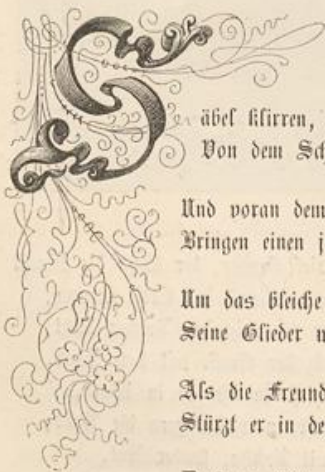 Säbel klirren,
Von dem Sch
Und voran dem
Bringen einen j
Um das bleiche
Seine Glieder u
Als die Freund
Stürzt er in de